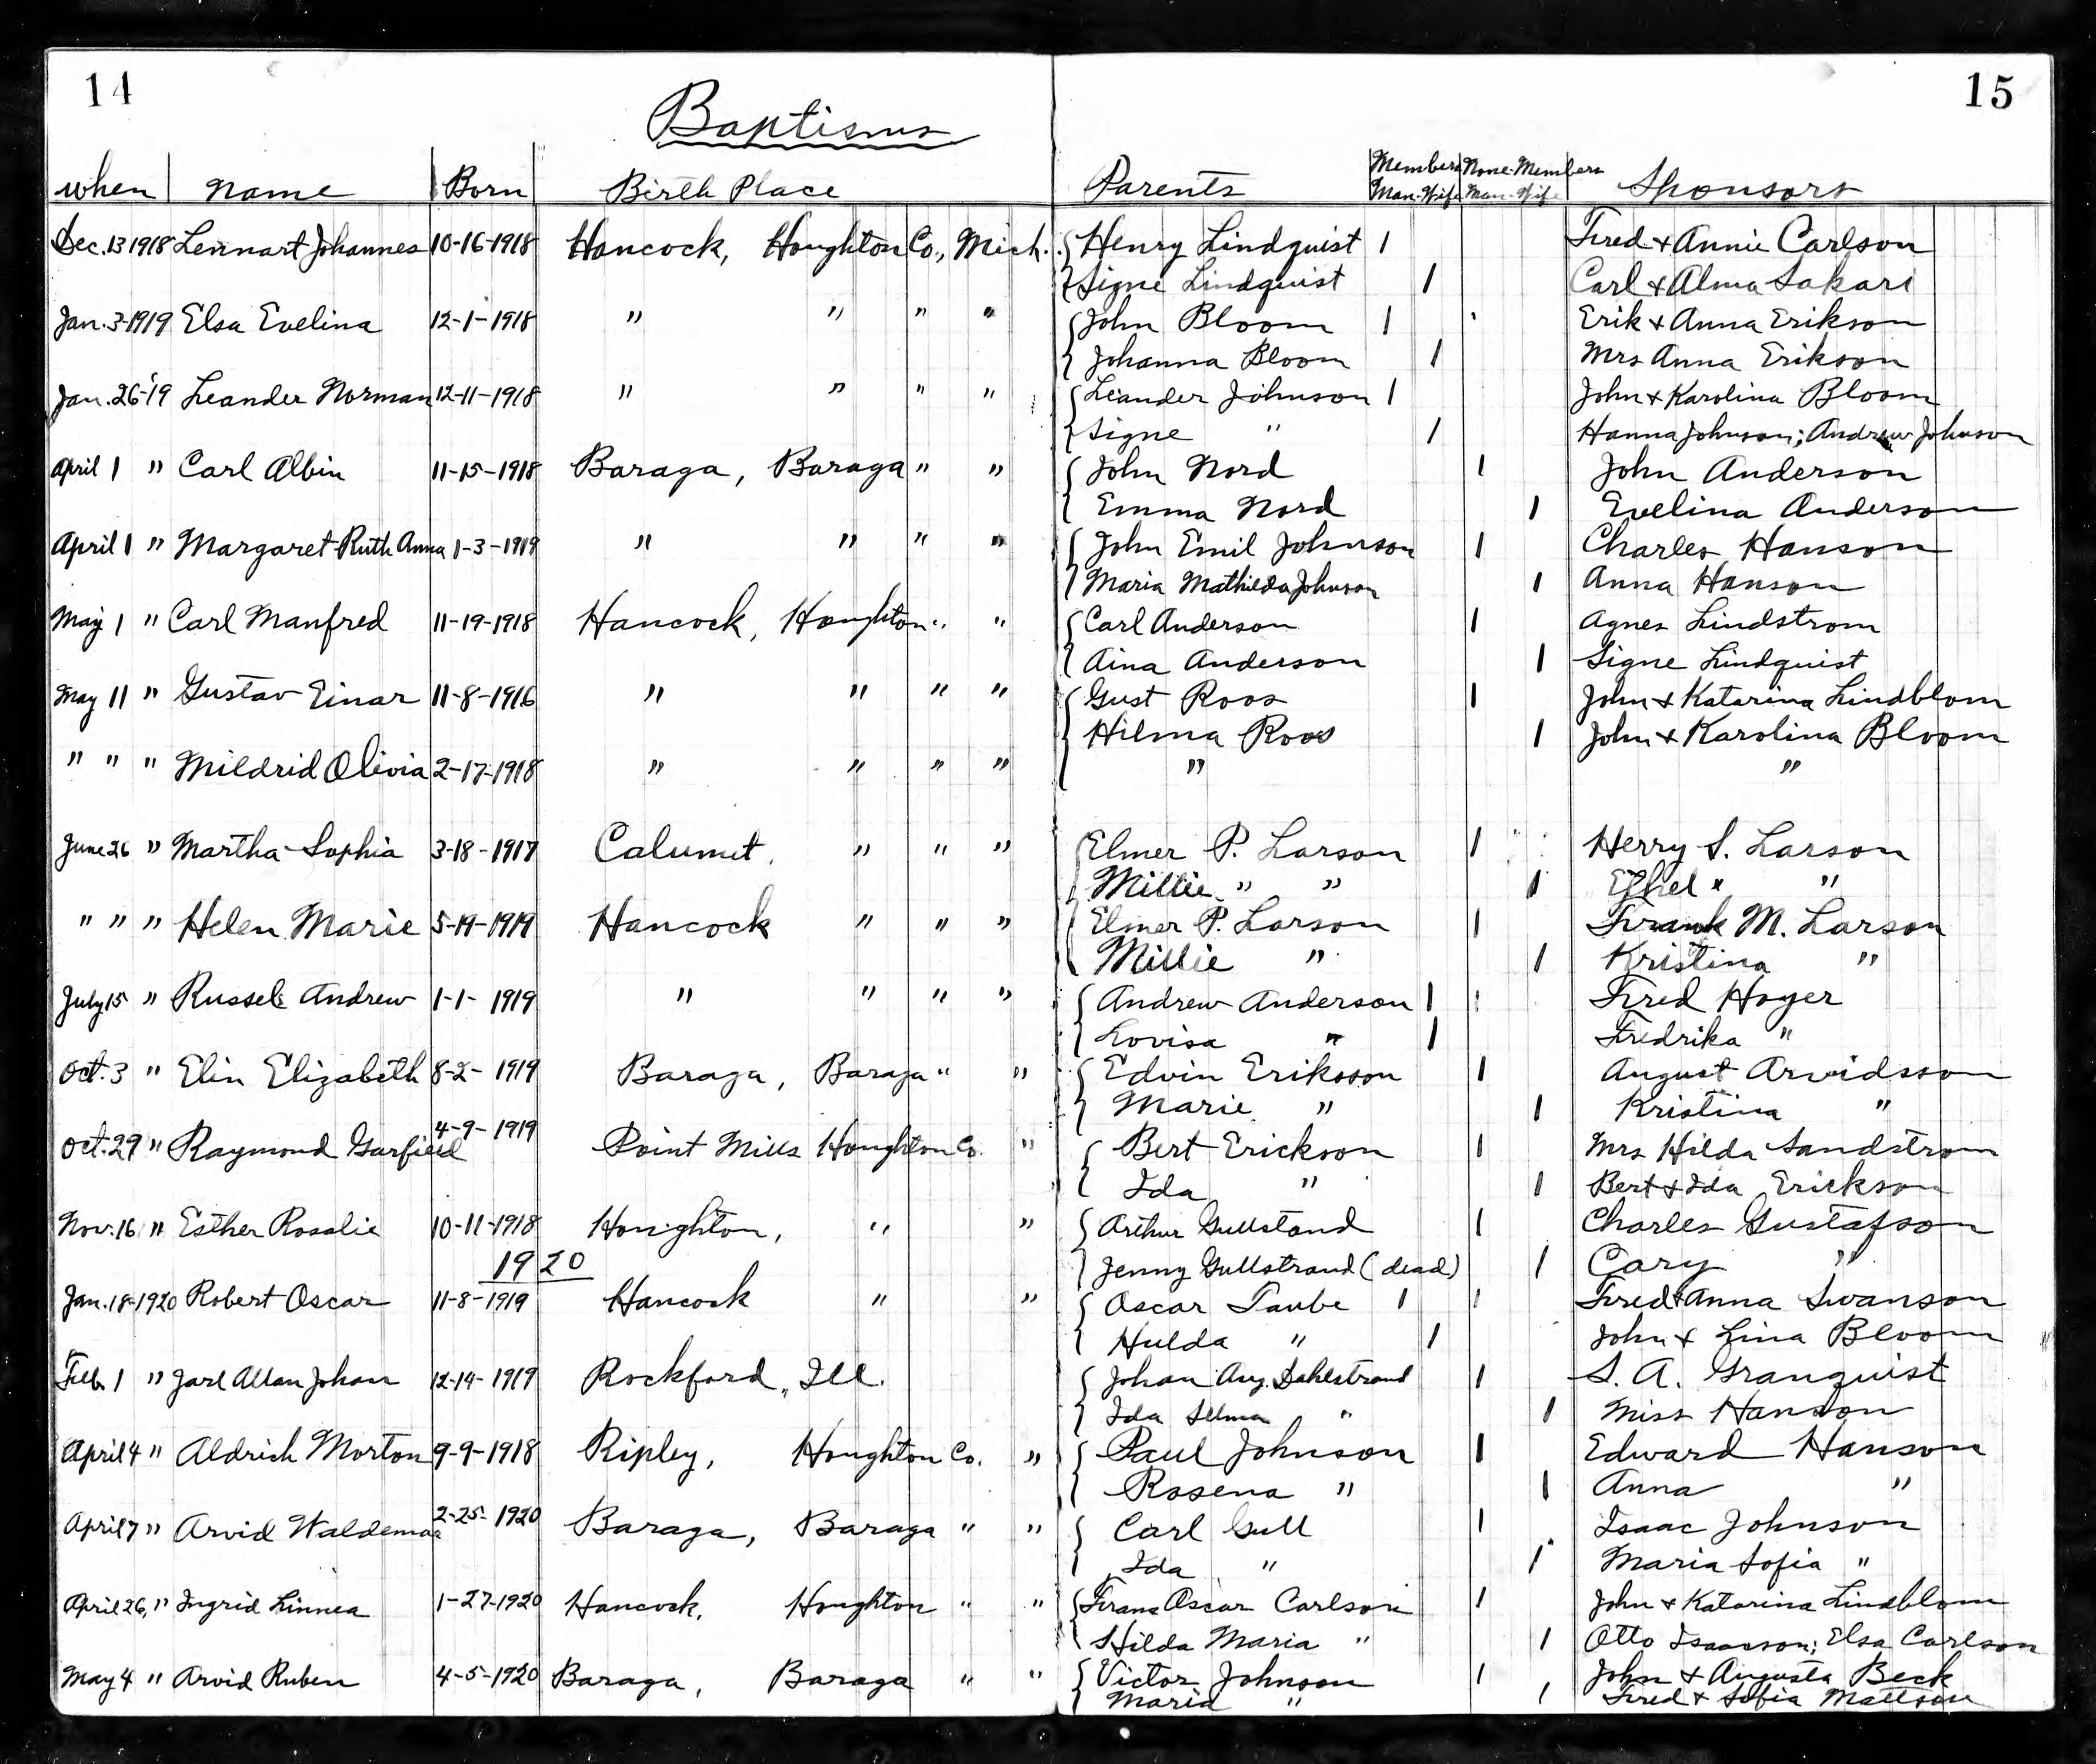 14
15
Baptisms
when name Born Birth Place Parents Members None-Members Sponsors
Man-Wife Man-Wife
Dec. 13 1918 Lennart Johannes 10-16-1918 Hancock, Houghton Co., Mich. Henry Lindquist 1 Fred & Annie Carlson
Signe Lindquist 1 Carl & Alma Sakari
Jan. 3-1919 Elsa Evelina 12-1-1918 " " " " John Bloom 1 Erik & Anna Erikson
Johanna Bloom 1 Mrs Anna Erikson
Jan. 26-'19 Leander Norman 12-11-1918 " " " " Leander Johnson 1 John & Karolina Bloom
Signe " 1 Hanna Johnson; Andrew Johnson
April 1 " Carl Albin 11-15-1918 Baraga, Baraga " " John Nord 1 John Anderson
Emma Nord 1 Evelina Anderson
April 1 " Margaret Ruth Anna 1-3-1919 " " " " John Emil Johnson 1 Charles Hanson
Maria Mathilda Johnson 1 Anna Hanson
May 1 " Carl Manfred 11-19-1918 Hancock, Houghton " " Carl Anderson 1 Agnes Lindstrom
Aina Anderson 1 Signe Lindquist
May 11 " Gustav Einar 11-8-1916 " " " " Gust Roos 1 John & Katarina Lindblom
Hilma Roos 1 John & Karolina Bloom
" " " Mildrid Olivia 2-17-1918 " " " " " "
June 26 " Martha Sophia 3-18-1917 Calumet, " " " Elmer P. Larson 1 Herry S. Larson
Millie " " 1 Ethel " "
" " " Helen Marie 5-19-1919 Hancock " " " Elmer P. Larson 1 Frank M. Larson
Millie " 1 Kristina "
July 15 " Russel Andrew 1-1-1919 " " " " Andrew Anderson 1 Fred Hoyer
Lovisa " 1 Fredrika "
Oct. 3 " Elin Elizabeth 8-2-1919 Baraga, Baraga " " Edvin Eriksson 1 August Arvidsson
Marie " 1 Kristina "
Oct. 29 " Raymond Garfield 4-9-1919 Point Mills Houghton Co. " Bert Erickson 1 Mrs Hilda Sandstrom
Ida " 1 Bert & Ida Erickson
Nov. 16 " Esther Rosalie 10-11-1918 Houghton, " " Arthur Gullstand 1 Charles Gustafson
1920 Jenny Gullstrand (dead) 1 Cary "
Jan. 18-1920 Robert Oscar 11-8-1919 Hancock " " Oscar Taube 1 Fred & Anna Swanson
Hulda " 1 John & Lina Bloom
Feb. 1 " Jarl Allan Johan 12-14-1919 Rockford, Ill. Johan Aug. Dahlstrand 1 S. A. Granquist
Ida Selma " 1 Miss Hanson
April 4 " Aldrich Morton 9-9-1918 Ripley, Houghton Co. " Paul Johnson 1 Edward Hanson
Rosena " 1 Anna "
April 7 " Arvid Waldemar 2-25-1920 Baraga, Baraga " " Carl Gull 1 Isaac Johnson
Ida " 1 Maria Sofia "
April 26, " Ingrid Linnea 1-27-1920 Hancock, Houghton " " Frans Oscar Carlson 1 John & Katarina Lindblom
Hilda Maria " 1 Otto Isaacson; Elsa Carlson
May 4 " Arvid Ruben 4-5-1920 Baraga, Baraga " " Victor Johnson 1 John & Augusta Beck
Maria " 1 Fred & Sofia Mattson